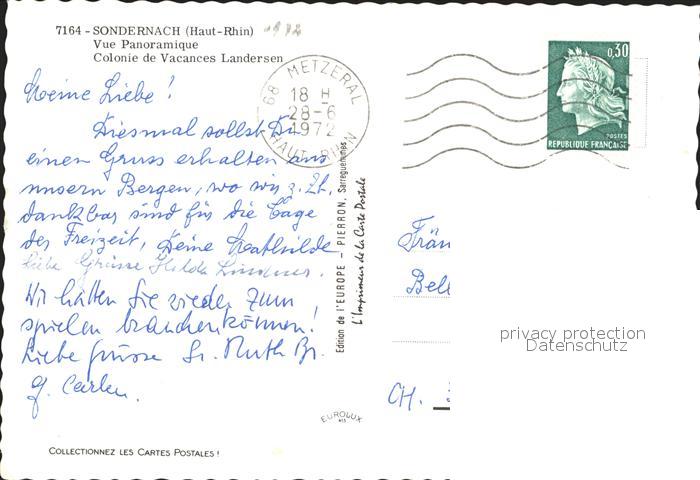 7164 - SONDERNACH (Haut-Rhin) 1972
Vue Panoramique
Colonie de Vacances Landersen
Meine Liebe!
Diesmal sollst Du
einen Gruss erhalten aus
unsern Bergen, wo wir z. Zt.
dankbar sind für die Tage
der Freizeit, Deine Mathilde
liebe Grüsse Hilda
Wir hätten Sie wieder zum
spielen brauchen können!
Liebe grüsse Sr. Ruth Br.
68 METZERAL
18 H
28-6
1972
HAUT-RHIN
0,30
POSTES
REPUBLIQUE FRANÇAISE
Edition de l'EUROPE - PIERRON, Sarreguemines
L'Imprimeur de la Carte Postale
Fräu
Bell
CH.
privacy protection
Datenschutz
EUROLUX
COLLECTIONNEZ LES CARTES POSTALES !